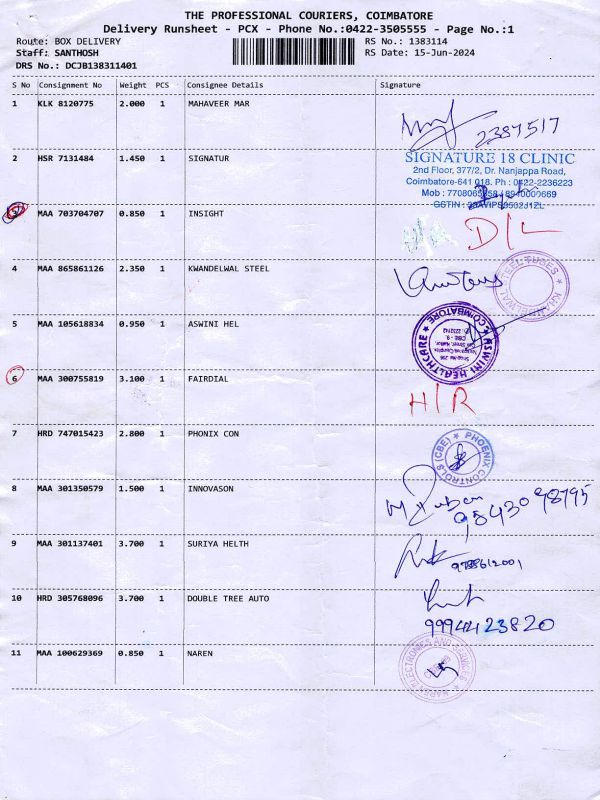 THE PROFESSIONAL COURIERS, COIMBATORE
Delivery Runsheet - PCX - Phone No.:0422-3505555 - Page No.:1
Route: BOX DELIVERY RS No.: 1383114
Staff: SANTHOSH RS Date: 15-Jun-2024
DRS No.: DCJB138311401
S No Consignment No Weight PCS Consignee Details Signature
1 KLK 8120775 2.000 1 MAHAVEER MAR
2387517
2 HSR 7131484 1.450 1 SIGNATUR SIGNATURE 18 CLINIC
2nd Floor, 377/2, Dr. Nanjappa Road,
Coimbatore-641 018. Ph : 0422-2236223
Mob :
GSTIN :
3 MAA 703704707 0.850 1 INSIGHT
D/L
4 MAA 865861126 2.350 1 KWANDELWAL STEEL
KHANDELWAL STEEL TUBES
5 MAA 105618834 0.950 1 ASWINI HEL
ASWINI HEALTHCARE COIMBATORE
6 MAA 300755819 3.100 1 FAIRDIAL
H/R
7 HRD 747015423 2.800 1 PHONIX CON
PHOENIX CONTROLS (CBE)
8 MAA 301350579 1.500 1 INNOVASON
9843098795
9 MAA 301137401 3.700 1 SURIYA HELTH
10 HRD 305768096 3.700 1 DOUBLE TREE AUTO
9994423820
11 MAA 100629369 0.850 1 NAREN